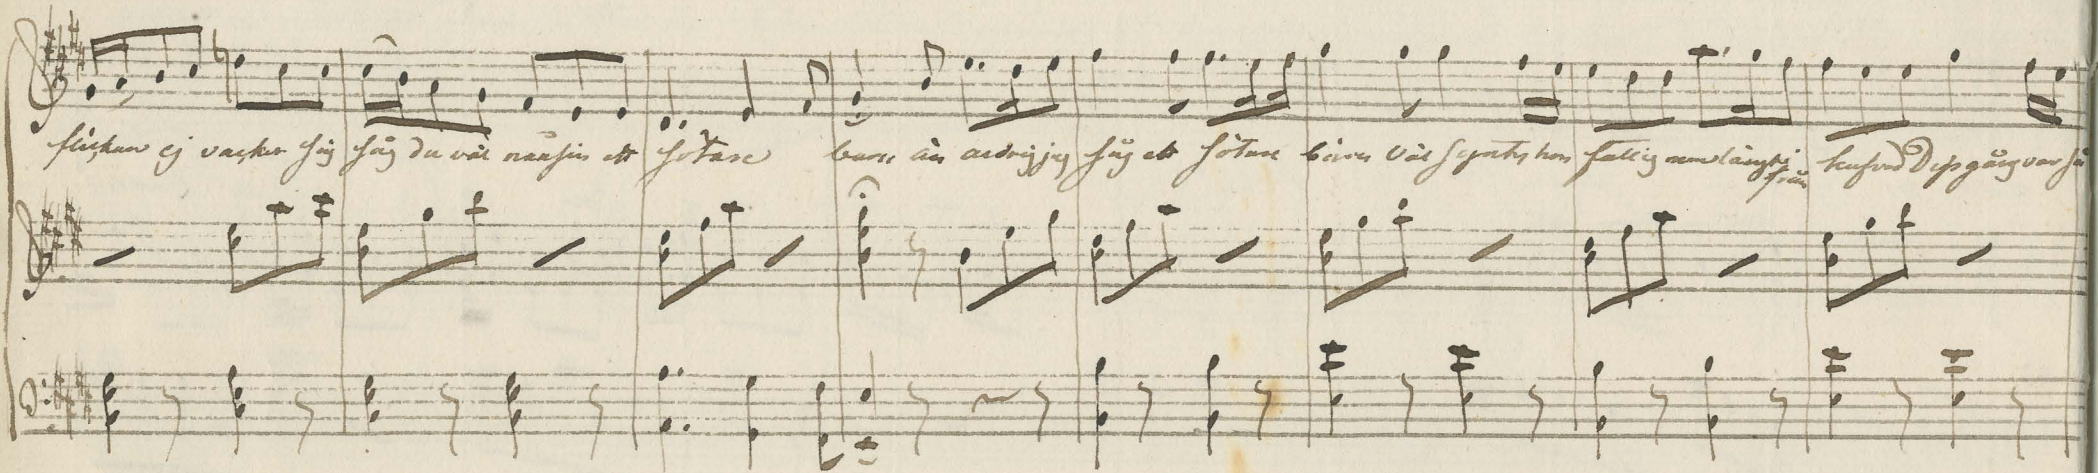 flickan ej vacker såg
såg du väl nånsin ett sötare
barn än aldrig jag såg ett sötare barn väl syntes hon fattig men långt ifrån hufvud Dess gång var så